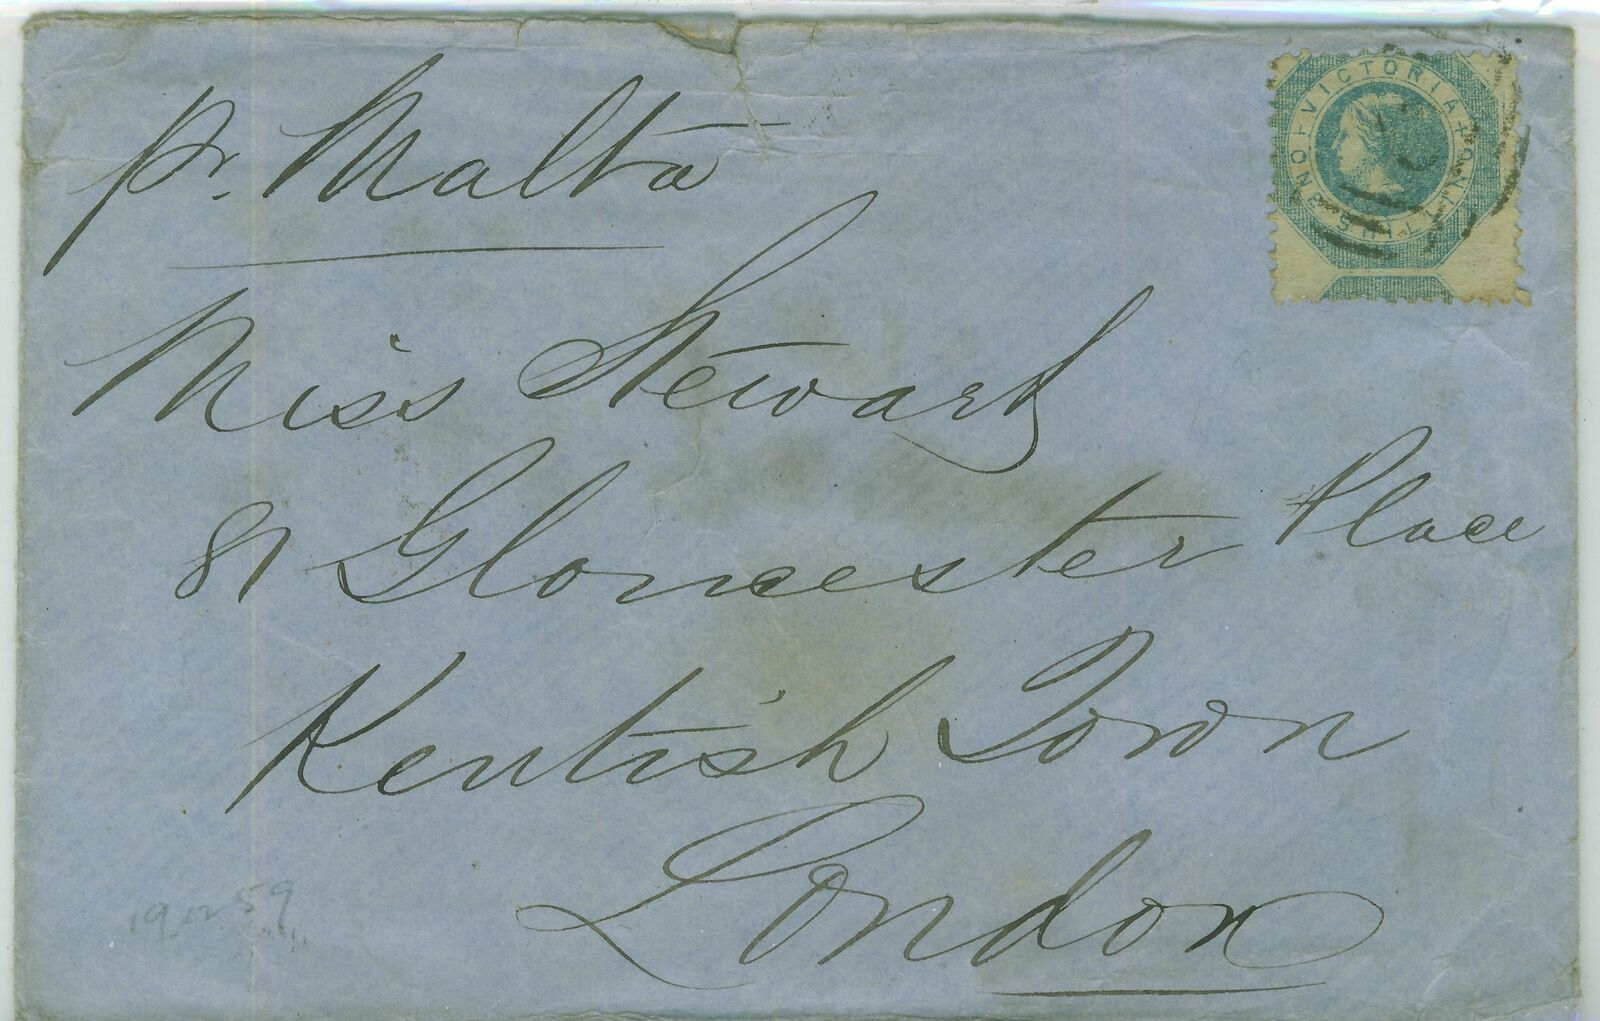 pr. Malta
Miss Stewart
81 Gloucester Place
Kentish Town
London
VICTORIA
ONE SHILLING
19 12 59